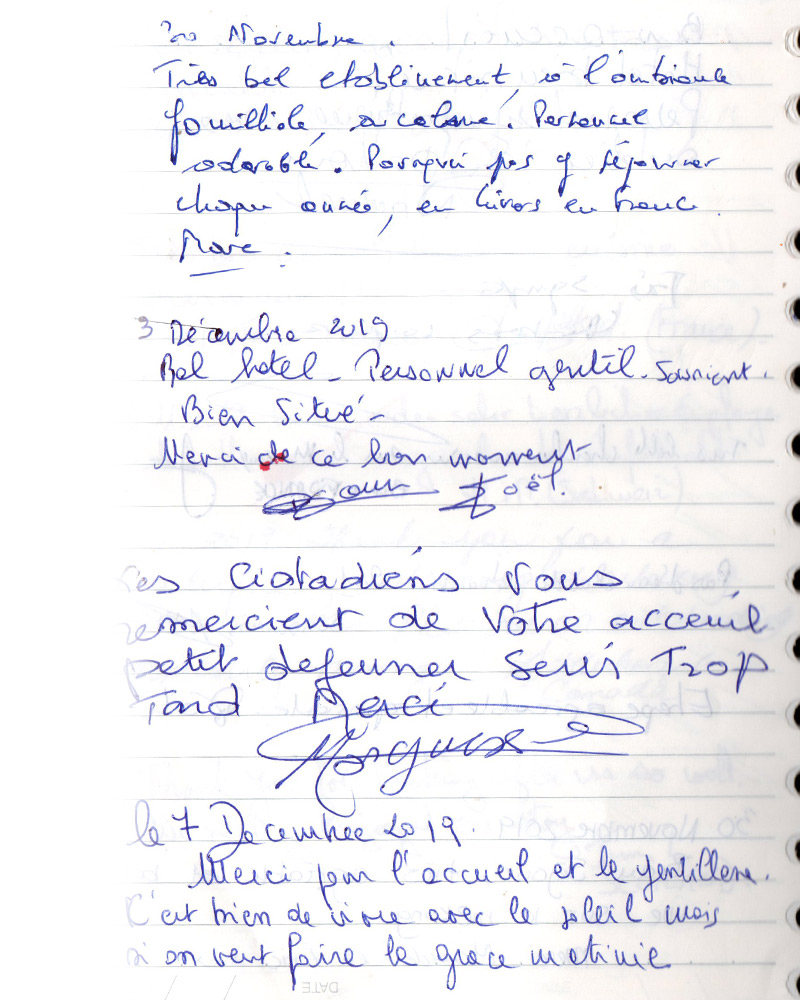 30 Novembre.
Très bel etablissement, à l'ambiance
familliale, au calme. Personnel
adorable. Pourquoi pas y séjourner
chaque année, en hivers en France
3 Décembre 2019
Bel hotel - Personnel gentil. Souriant.
Bien Situé -
Merci de ce bon moment
Joël.
Les Ciotadiens Vous
remercient de Votre acceuil
petit dejeuner Servis Trop
Tard Merci
le 7 Decembre 2019.
Merci pour l'accueil et la gentillesse.
C'est bien de vivre avec le soleil mais
si on veut faire la grace matinie
DATE